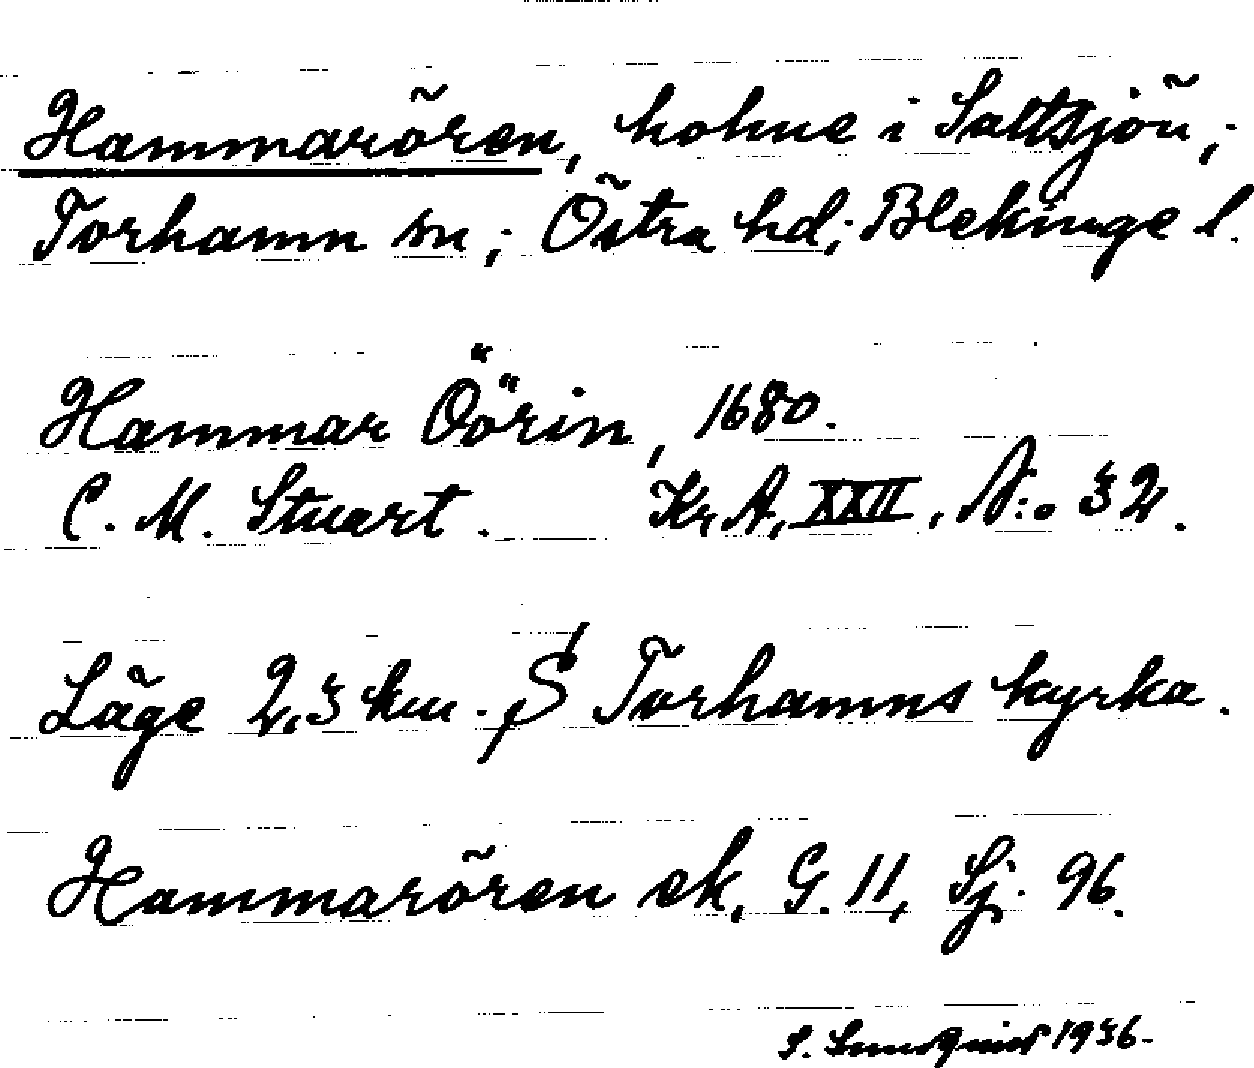 Hammarören, holme i Saltsjön;
Torhamn sn; Östra hd; Blekinge l.
Hammar Öörin, 1680.
C. M. Stuart. Kr. A, XXII, N:o 32.
Läge 2,3 km. S Torhamns kyrka.
Hammarören ek. G. 11, Sj. 96.
1936.